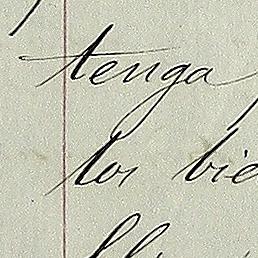 tenga
los bie